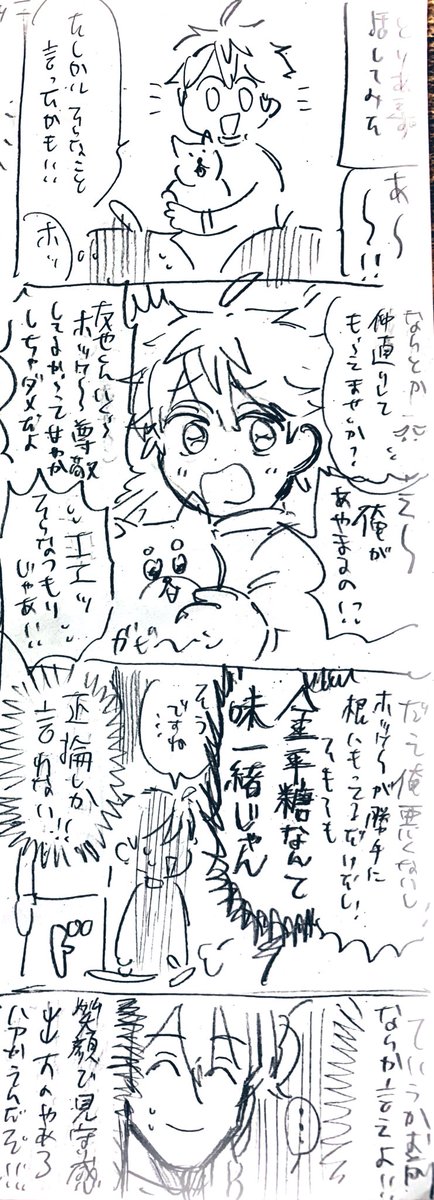 とりあえず
話してみた
あ〜
〜!!
たしかにそんなこと
言ったかも!!
ホッ
なんとか
仲直りして
もらえてませんか?
え〜
俺が
あやまるの!?
ホッケ〜尊敬
してるからって甘やか
しちゃダメだよ
エエッ
そんなつもり
じゃあ!!
ガビ〜ン
だって俺悪くないし
ホッケ〜が勝手に
根にもってるだけだし!
そもそも
金平糖なんて
味一緒じゃん
そう
ですね
正論しか
言えない!!
ていうかお前
なんか言えよ!!
…
笑顔で見守る感
出すのやめろ